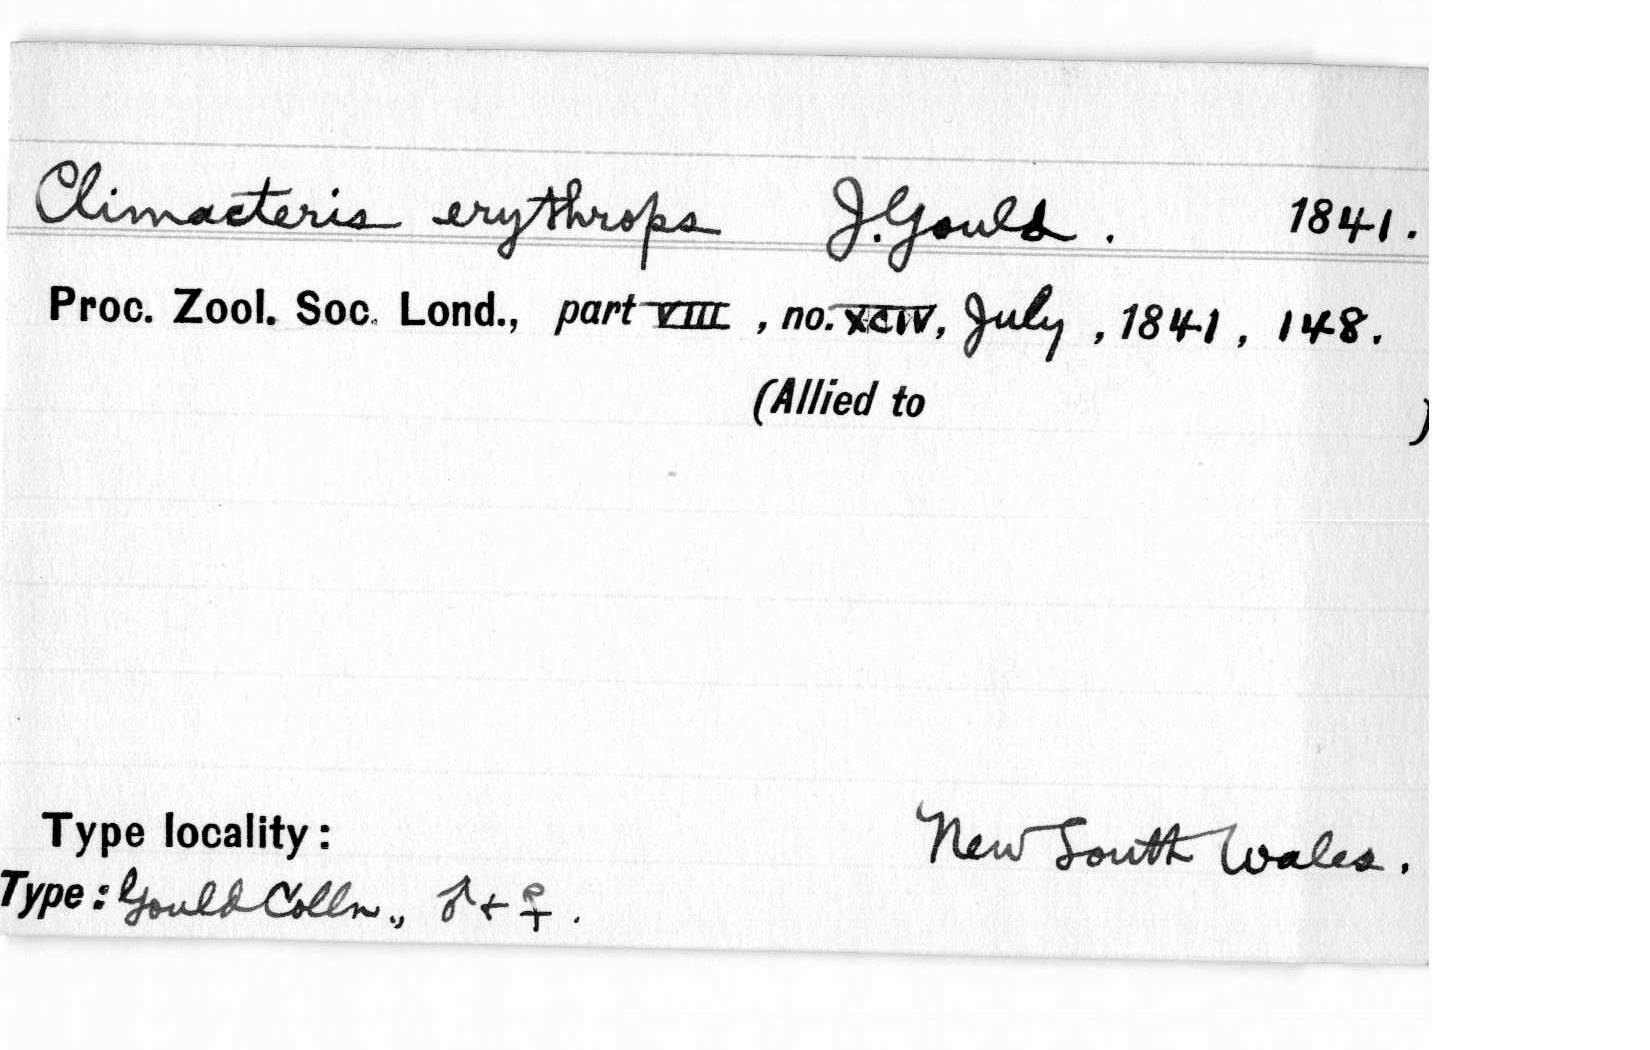 Climacteris erythrops J. Gould. 1841.
Proc. Zool. Soc. Lond., part VIII, no. XCIV, July, 1841, 148.
(Allied to )
Type locality: New South Wales.
Type: Gould Colln., ♂ + ♀.